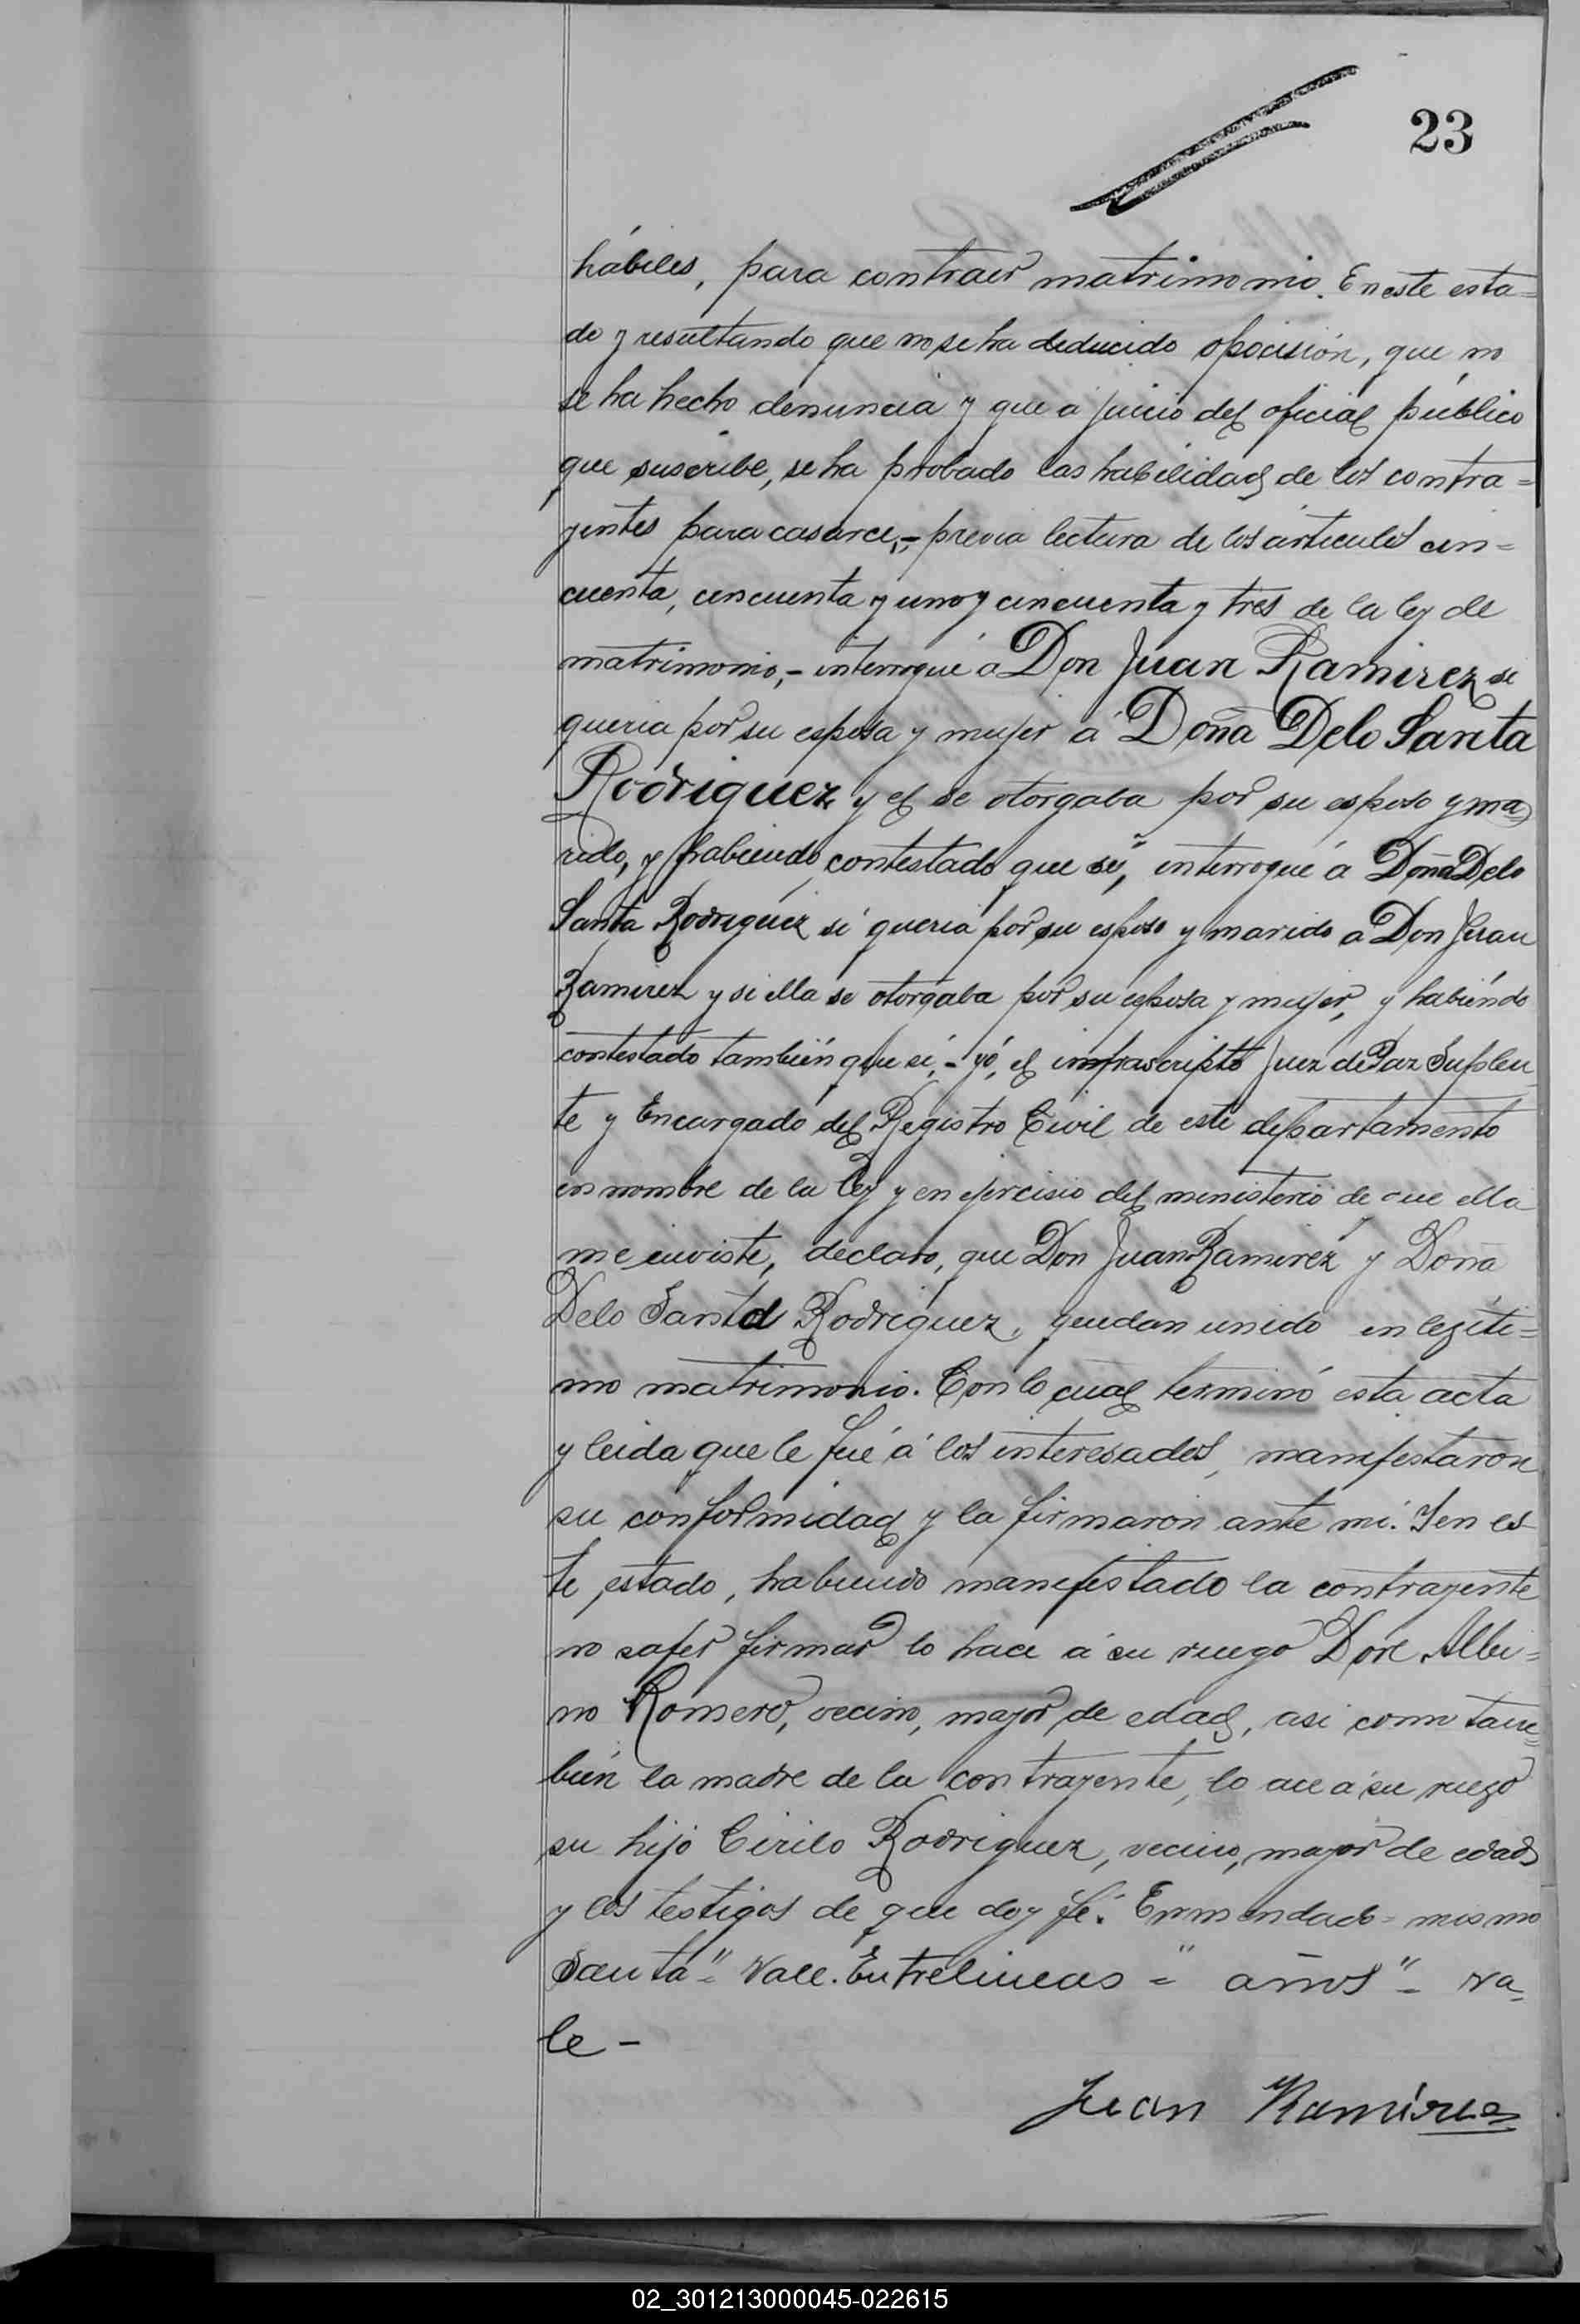 23
hábiles, para contraer matrimonio. En este esta=
do y resultando que no se ha deducido oposición, que no
se ha hecho denuncia y que a juicio del oficial público
que suscribe, se ha probado las habilidad de los contra=
yentes para casarce,- previa lectura de los artículos cin=
cuenta, cincuenta y uno y cincuenta y tres de la ley de
matrimonio,- interrogué a Don Juan Ramirez si
queria por su esposa y mujer á Doña Delo Santa
Rodriguez y el se otorgaba por su esposo y ma=
rido, y habiendo contestado que sí, interrogué á Doña Delo
Santa Rodriguez si queria por su esposo y marido a Don Juan
Ramirez y si ella se otorgaba por su esposa y mujer, y habiendo
contestado también que sí,- yó, el infrascripto Juez de Paz Suplen
te y Encargado del Registro Civil de este departamento
en nombre de la Ley y en ejercisio del ministerio de que ella
me inviste, declaro, que Don Juan Ramirez y Doña
Delo Santa Rodriguez, quedan unido en legiti=
mo matrimonio. Con lo cual terminó esta acta
y leida que le fué á los interesados, manifestaron
su conformidad y la firmaron ante mi. Y en es
te estado, habiendo manifestado la contrayente
no saber firmar lo hace á su ruego Don Albi=
no Romero, vecino, mayor de edad, asi como tam=
bién la madre de la contrayente, lo ace á su ruego
su hijo Cirilo Rodriguez, vecino, mayor de edad
y los testigos de que doy fé. Enmendado= mismo
Santa"= Vale. Entrelineas = "años" - va=
le -
Juan Ramirez
02_301213000045-022615